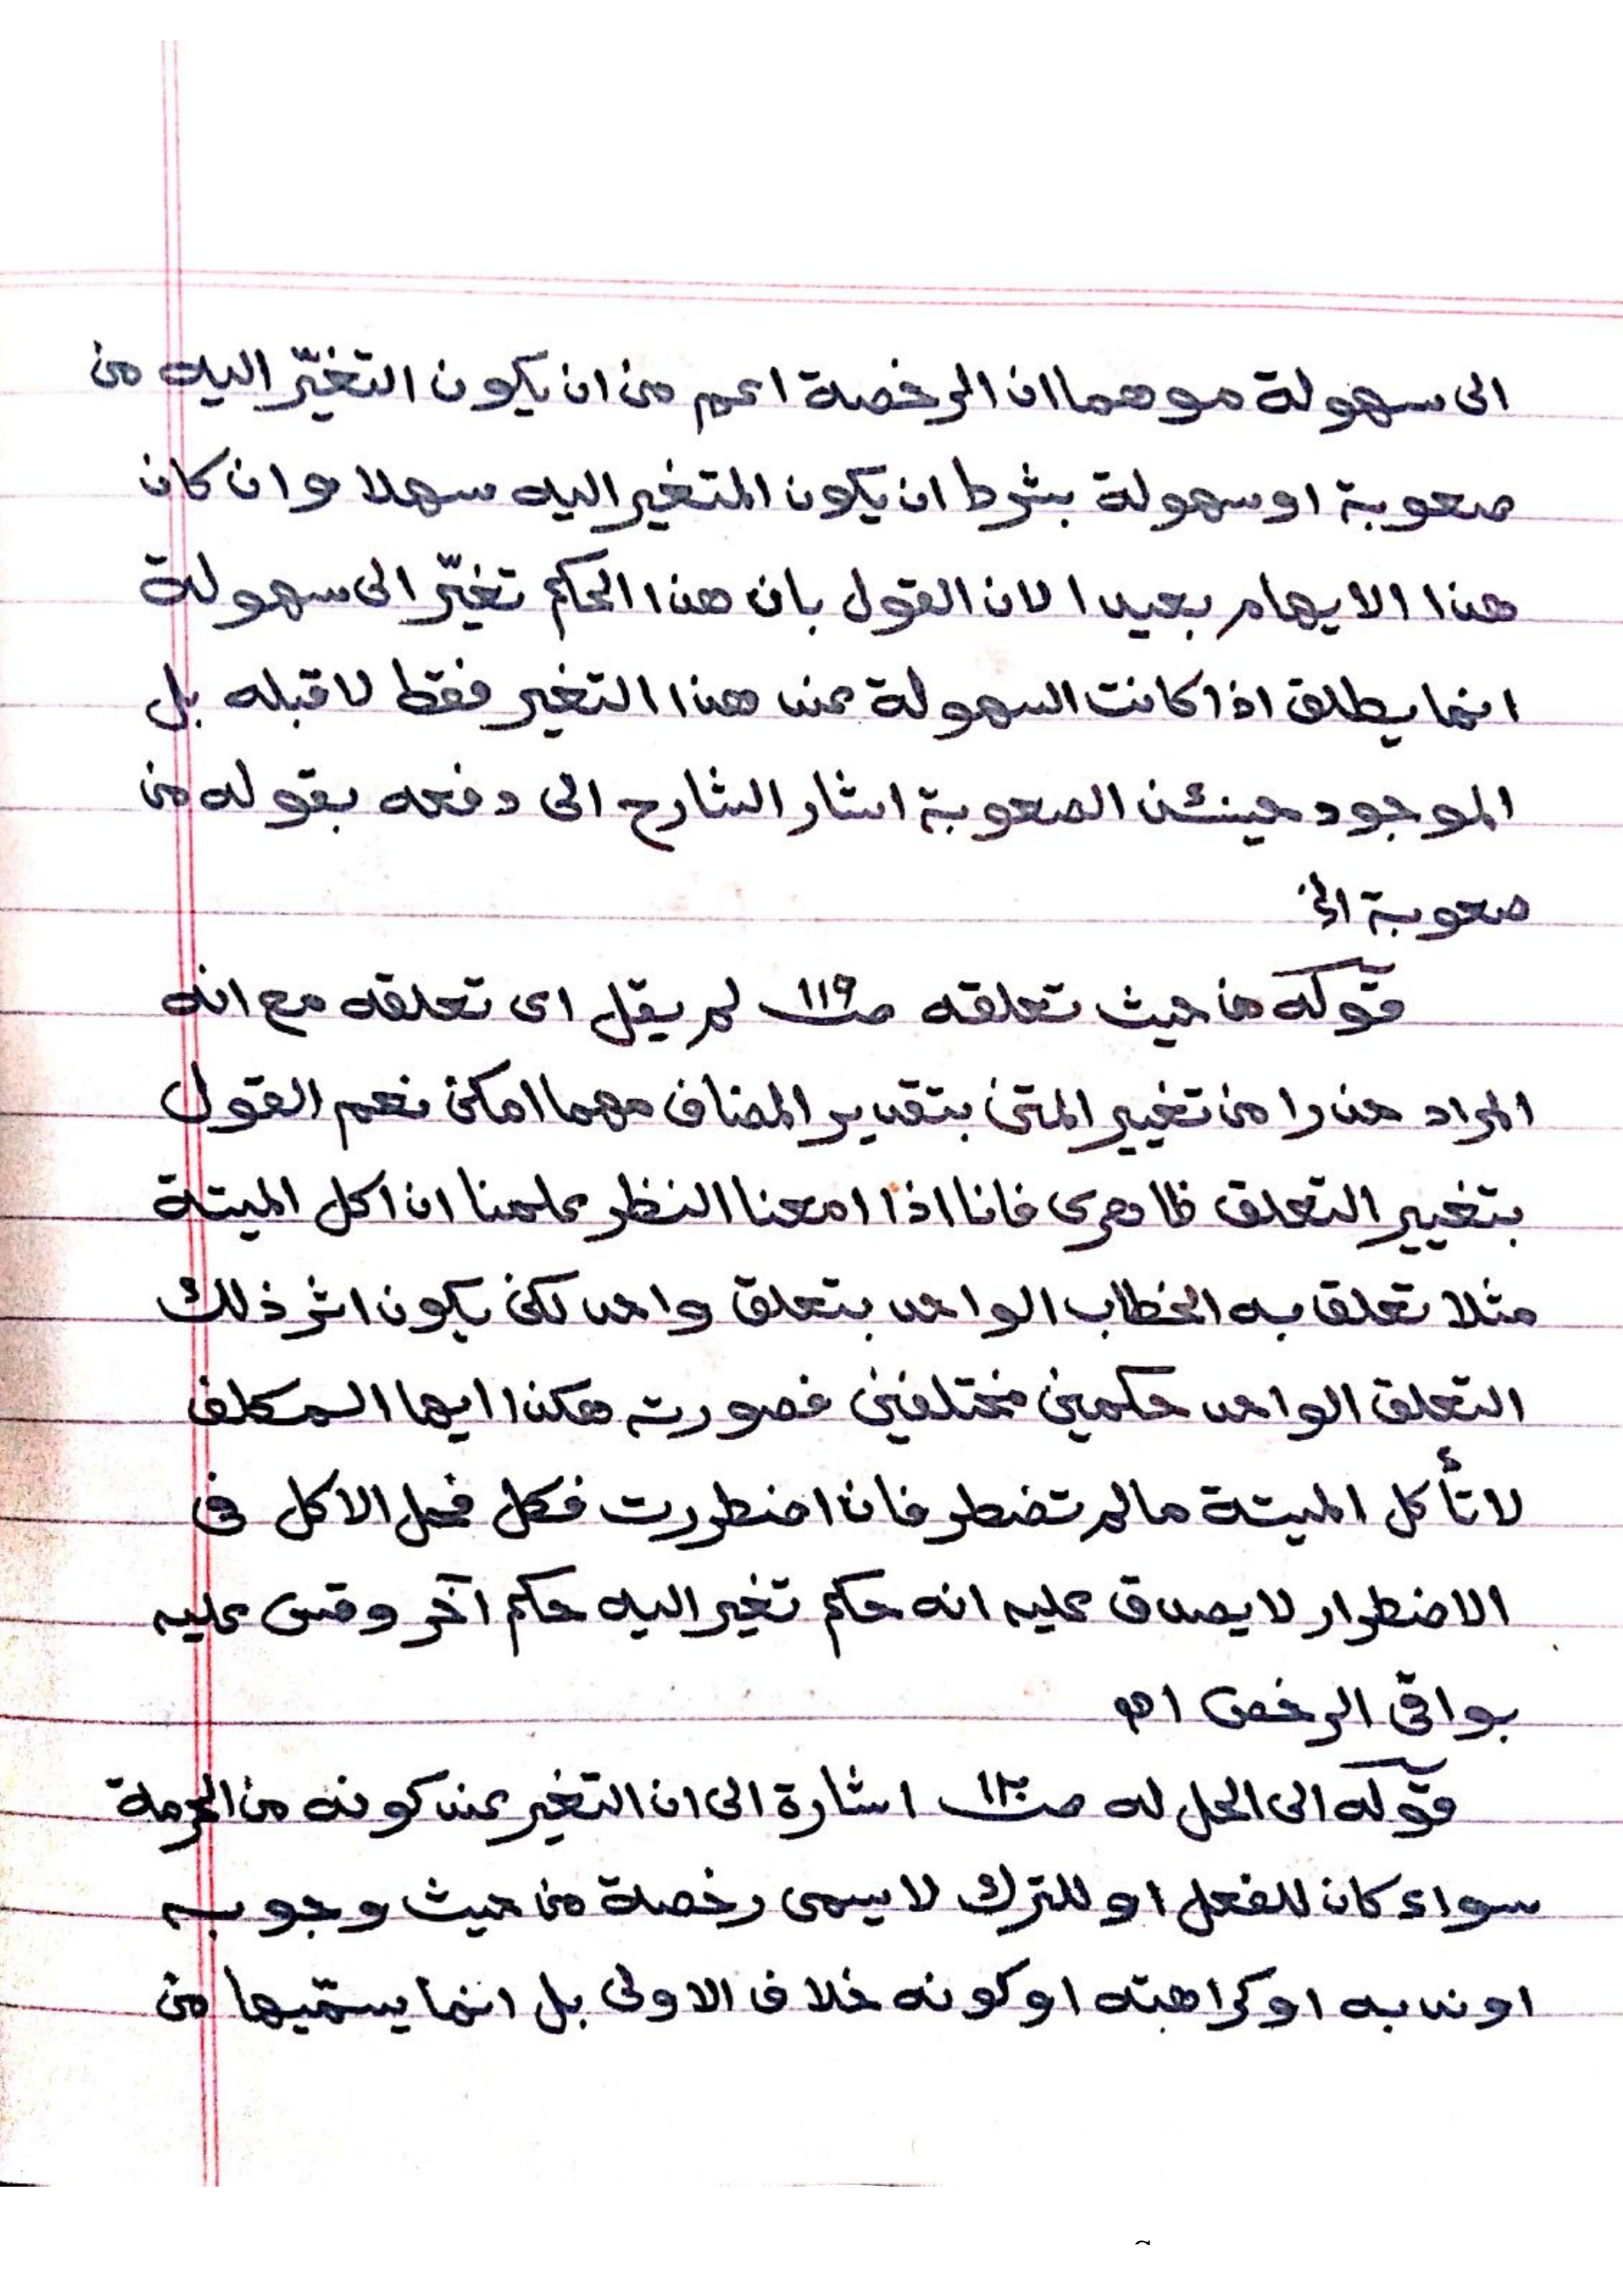 الى سهولة موهما ان الرخصة اعم من ان يكون التغيّر اليه من
صعوبة او سهولة بشرط ان يكون المتغير اليه سهلا وان كان
هذا الايهام بعيدا لان القول بان هذا الحكم تغيّر الى سهولة
انما يطلق اذا كانت السهولة عند هذا التغير فقط لا قبله بل
الموجود حينئذ الصعوبة اشار الشارح الى دفعه بقوله من
صعوبة الخ
قوله من حيث تعلقه صـ١١٩ لم يقل اى تعلقه مع انه
المراد حذرا من تغيير المتن بتقدير المضاف مهما امكن نعم القول
بتغيير التعلق ظاهرى فانا اذا امعنا النظر علمنا ان اكل الميتة
مثلا تعلق به الخطاب الواحد بتعلق واحد لكن يكون اثر ذلك
التعلق الواحد حكمين مختلفين فصورته هكذا ايها المكلف
لا تأكل الميتة مالم تضطر فان اضطررت فكل فحل الاكل فى
الاضطرار لا يصدق عليه انه حكم تغير اليه حكم آخر وقس عليه
بواقى الرخص اهـ
قوله الى الحل له صـ١٢٠ اشارة الى ان التغير عند كونه من الحرمة
سواء كان للفعل او للترك لا يسمى رخصة من حيث وجوبه
او ندبه او كراهته او كونه خلاف الاولى بل انما يسمّيها من